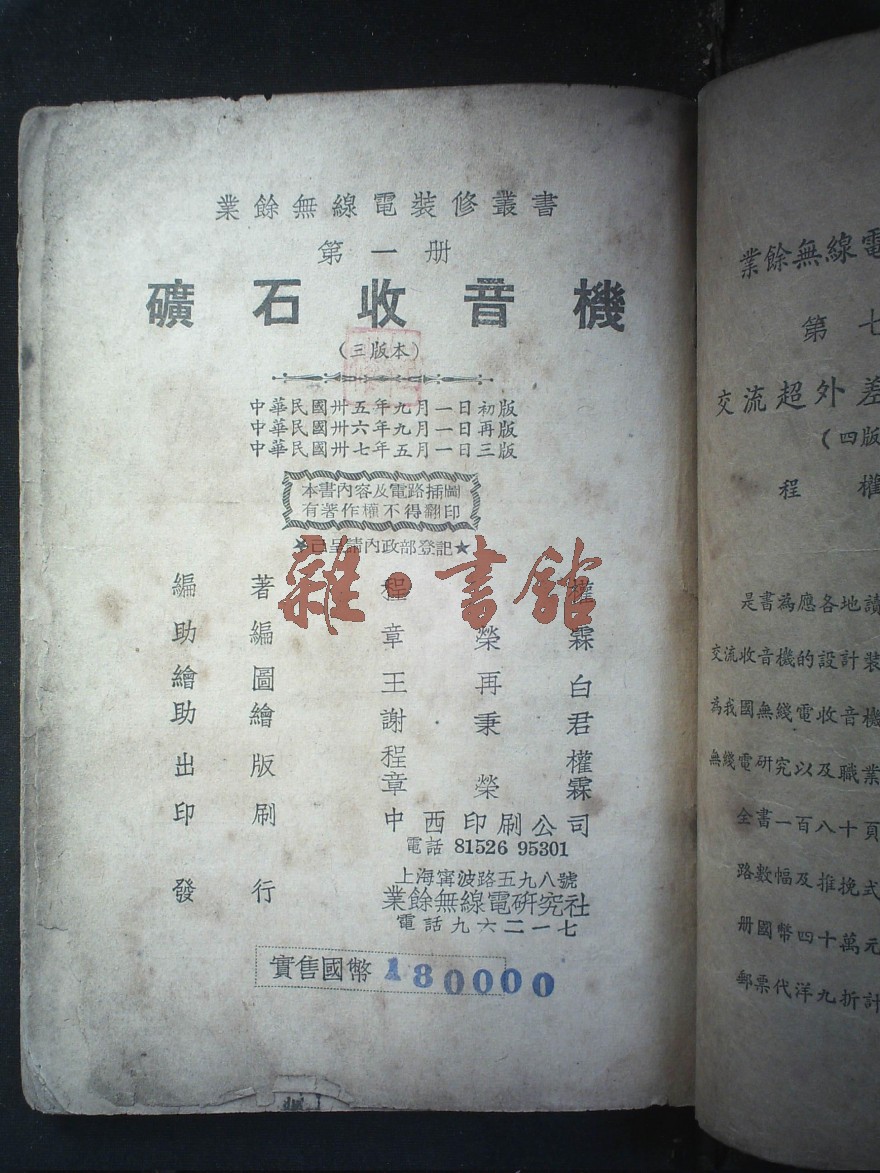 業餘無線電裝修叢書
第一册
礦石收音機
(三版本)
中華民國卅五年九月一日初版
中華民國卅六年九月一日再版
中華民國卅七年五月一日三版
本書內容及電路插圖
有著作權不得翻印
★已呈請內政部登記★
編著 程權
助編 章榮霖
繪圖 王再白
助繪 謝秉君
出版 程權
章榮霖
印刷 中西印刷公司
電話 81526 95301
發行 上海甯波路五九八號
業餘無線電研究社
電話九六二一七
實售國幣 180000
雜·書館
業餘無線電
第七
交流超外差
(四版
程權
是書為應各地讀
交流收音機的設計裝
為我國無綫電收音機
無綫電研究以及職業
全書一百八十頁
路數幅及推挽式
册國幣四十萬元
郵票代洋九折計